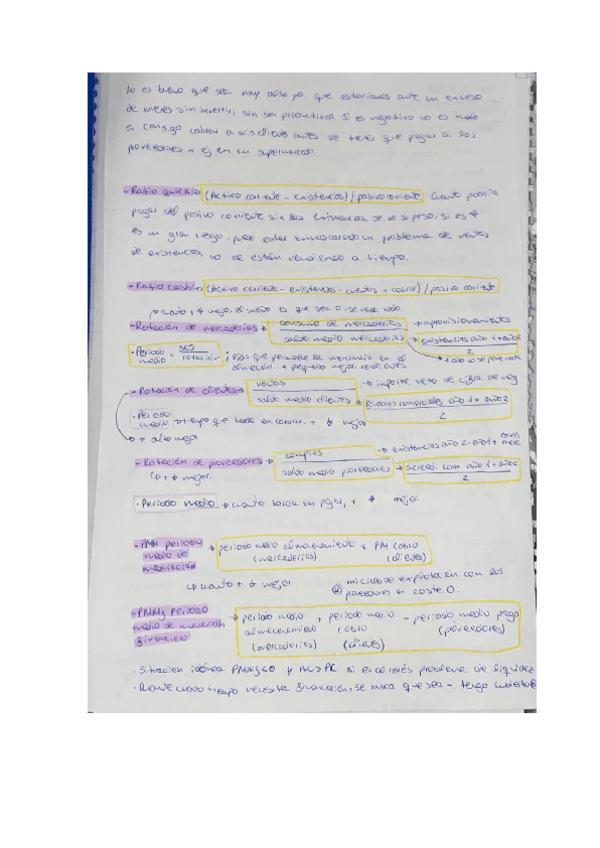 no es bueno que sea muy alto ya que estaríamos ante un exceso
de bienes sin invertir, sin ser productivos. Si es negativo no es malo
si consigo cobrar a mis clientes antes de tener que pagar a los
proveedores → ej en un supermercado
- Ratio (Activo corriente - existencias) / pasivo corriente cuanto podría
pagar del pasivo corriente sin las existencias, se va si es
es un gran riesgo. puede estar enmascarando un problema de ventas
de existencias, no se están vendiendo a tiempo.
- Ratio (Activo corriente - existencias - clientes x cobrar) / pasivo corriente
mejor, es que sea 0.
- Rotación de mercaderías → consumo de mercaderías → aprovisionamientos
saldo medio mercaderías → existencias año 1 + año 2
2
· Periodo medio = 365 / rotación : Días que permanece la mercancía en el
almacén. + pequeño mejor
- Rotación de clientes → ventas → importe neto de cifra de neg
saldo medio clientes → comerciales año 1 + año 2
2
· Periodo medio → tiempo que tarda en cobrar. + ↓ mejor
↳ + alto mejor
- Rotación de proveedores → compras → existencias año 2 - año 1 +
saldo medio proveedores → acreed. com año 1 + año 2
2
↳ + ↓ mejor.
· Periodo medio → cuanto tarda en pagar, + mejor.
- PMM periodo medio de maduración → periodo medio almacenamiento + PM cobro
(mercaderías) (clientes)
↳ cuanto + ↓ mejor
mi ciclo de explotación con los
a coste 0.
- PMMf Periodo medio de maduración financiero → periodo medio almacenamiento (mercaderías) + periodo medio cobro (clientes) - periodo medio pago (proveedores)
· Situación idónea PMMf < 0 y AC > PC si es al revés problema de liquidez
· Durante cuanto tiempo necesita financiación, se busca que sea -, tengo